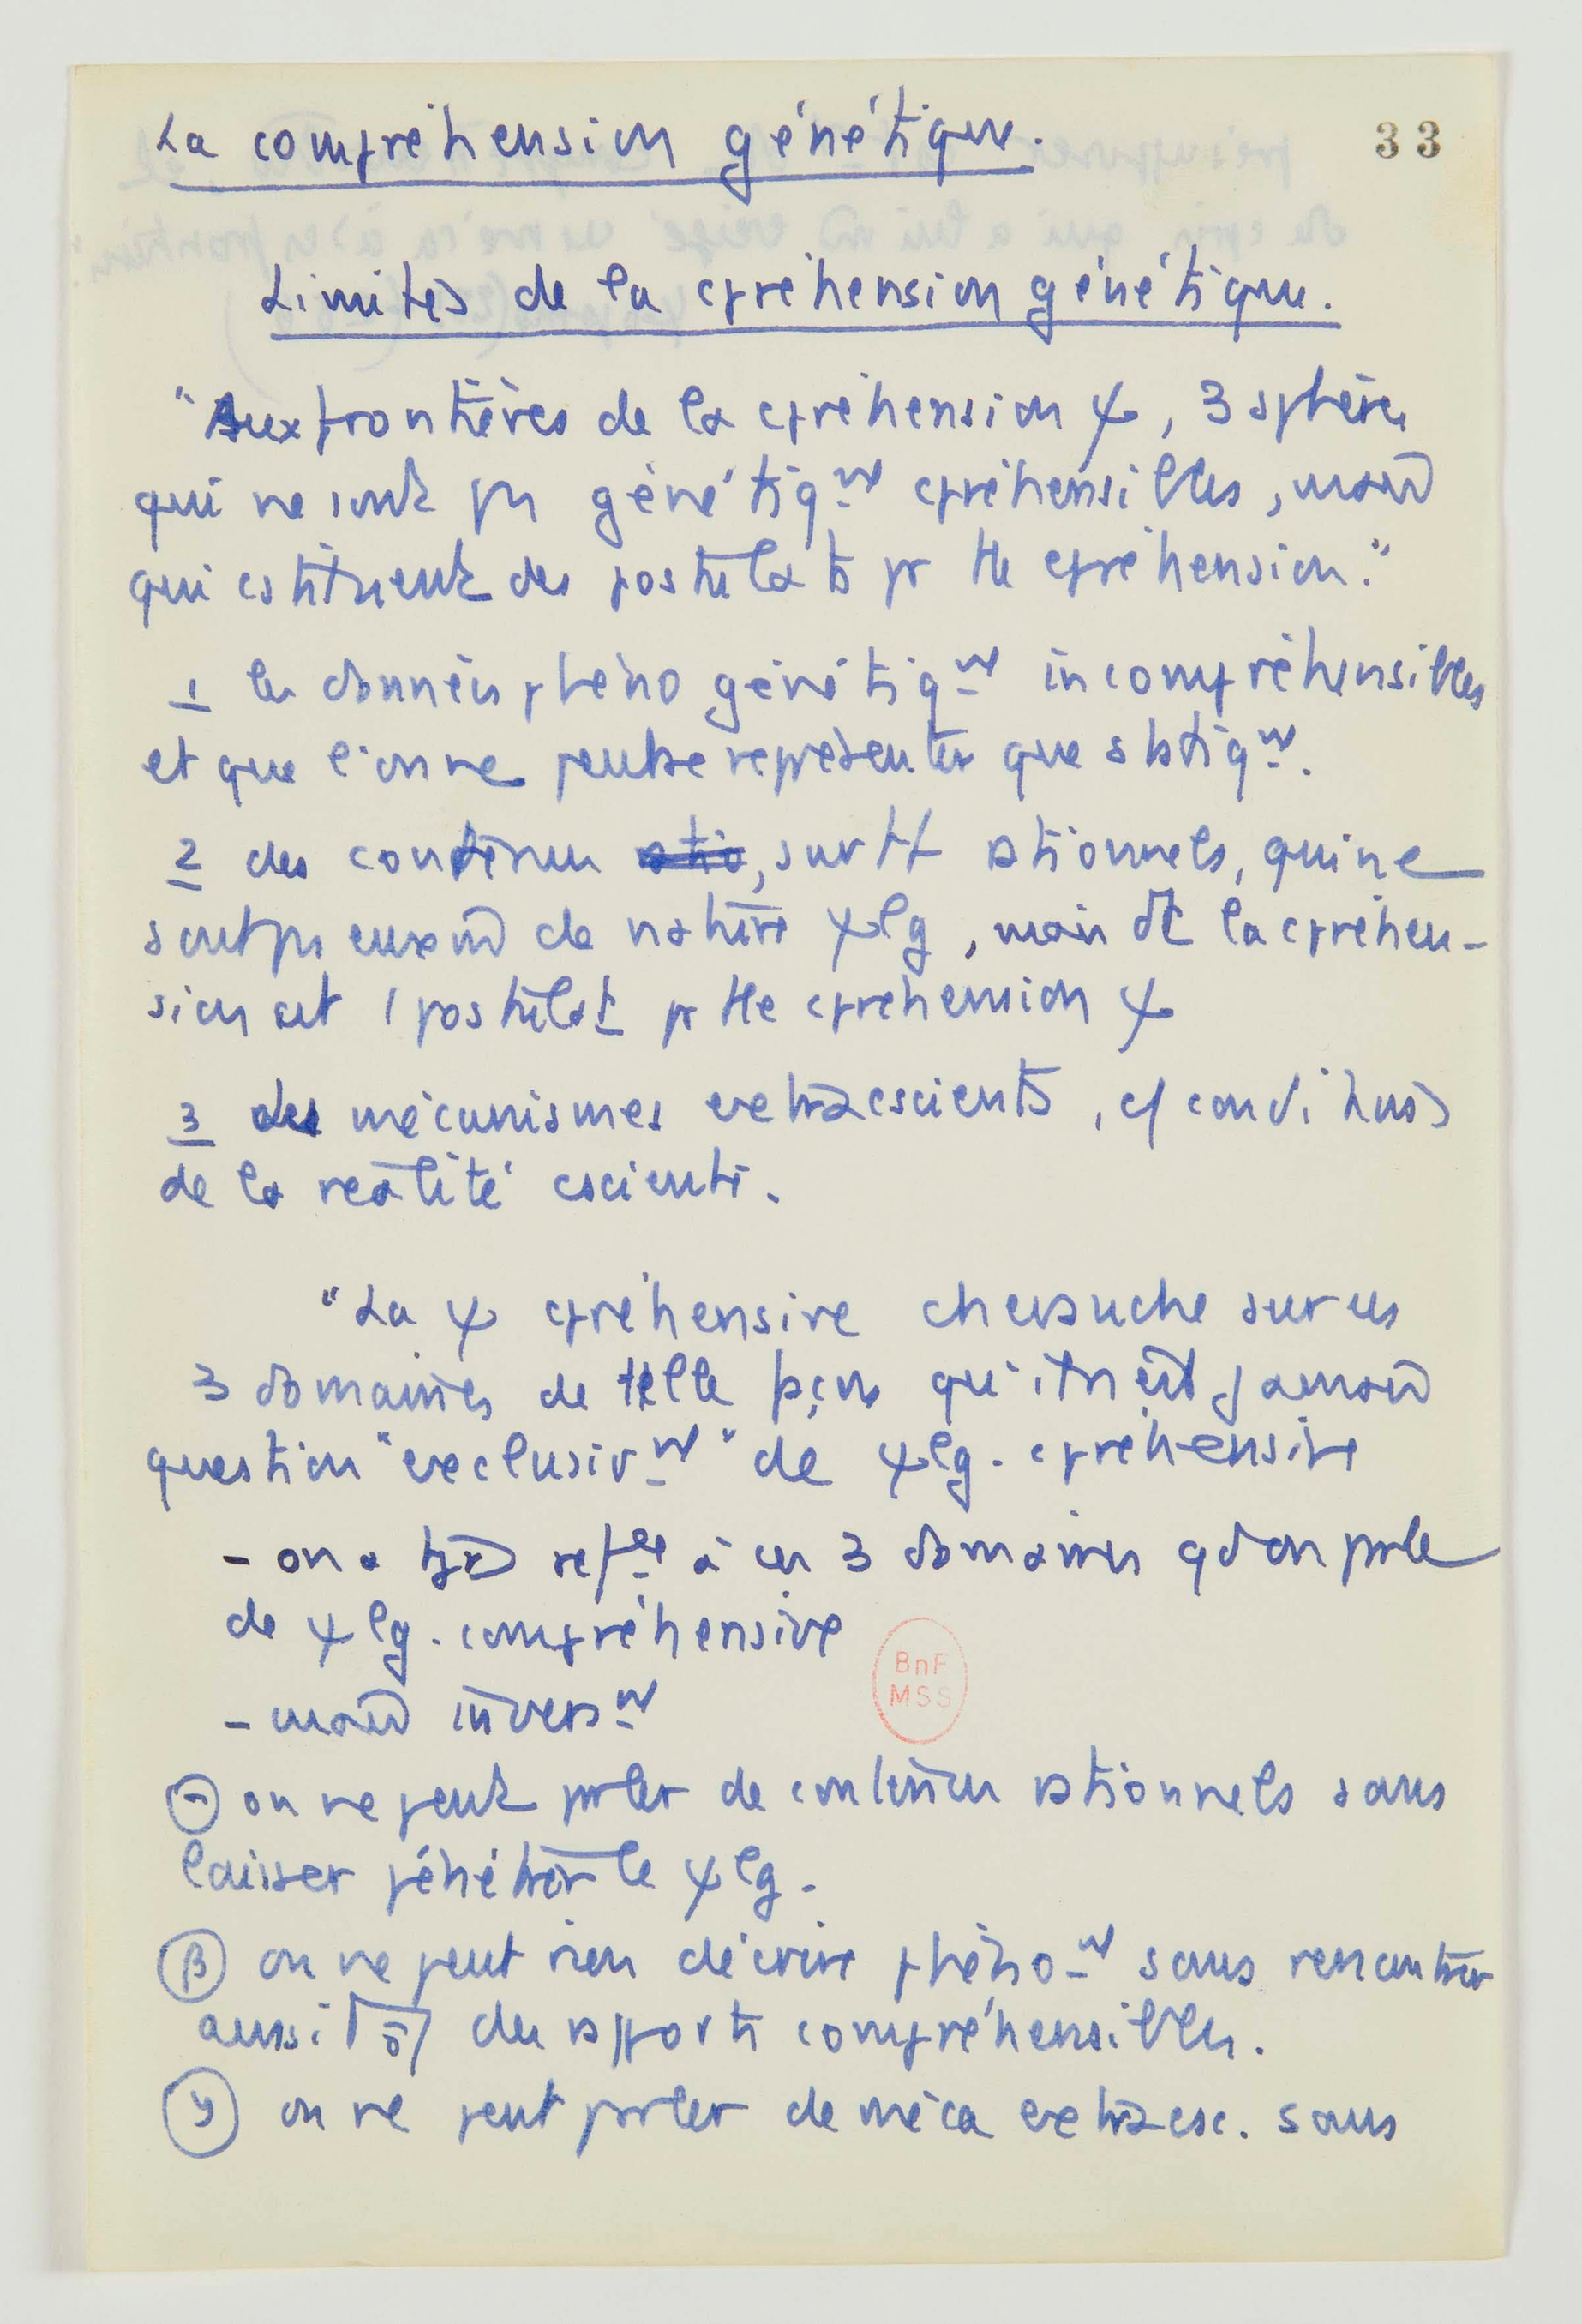 La compréhension génétique.
33
Limites de la cpréhension génétique.
"Aux frontières de la cpréhension ψ, 3 sphères
qui ne sont pas génétiqnt cpréhensibles, mais
qui cstituent des postulats pr tte cpréhension."
1 les données phéno génétiqnt incompréhensibles
et que l'on ne peut se représenter que statiqnt.
2 des contenus, surtt rationnels, qui ne
sont pas eux mêmes de nature ψlg, mais dt la cpréhen-
sion est 1 postulat pr tte cpréhension ψ
3 des mécanismes extracscients, c/ conditions
de la réalité csciente.
"La ψ cpréhensive chevauche sur ces
3 domaines de telle façon qu'il n'est jamais
question "exclusivnt" de ψlg. cpréhensive
- on a tjrs réfce à ces 3 domaines qd on parle
de ψlg. compréhensive
- mais inversnt
on ne peut parler de contenus rationnels sans
laisser pénétrer le ψlg.
β on ne peut rien décrire phénont sans rencontrer
aussitôt des rapports compréhensibles.
γ on ne peut parler de méca extracsc. sans
BnF
MSS